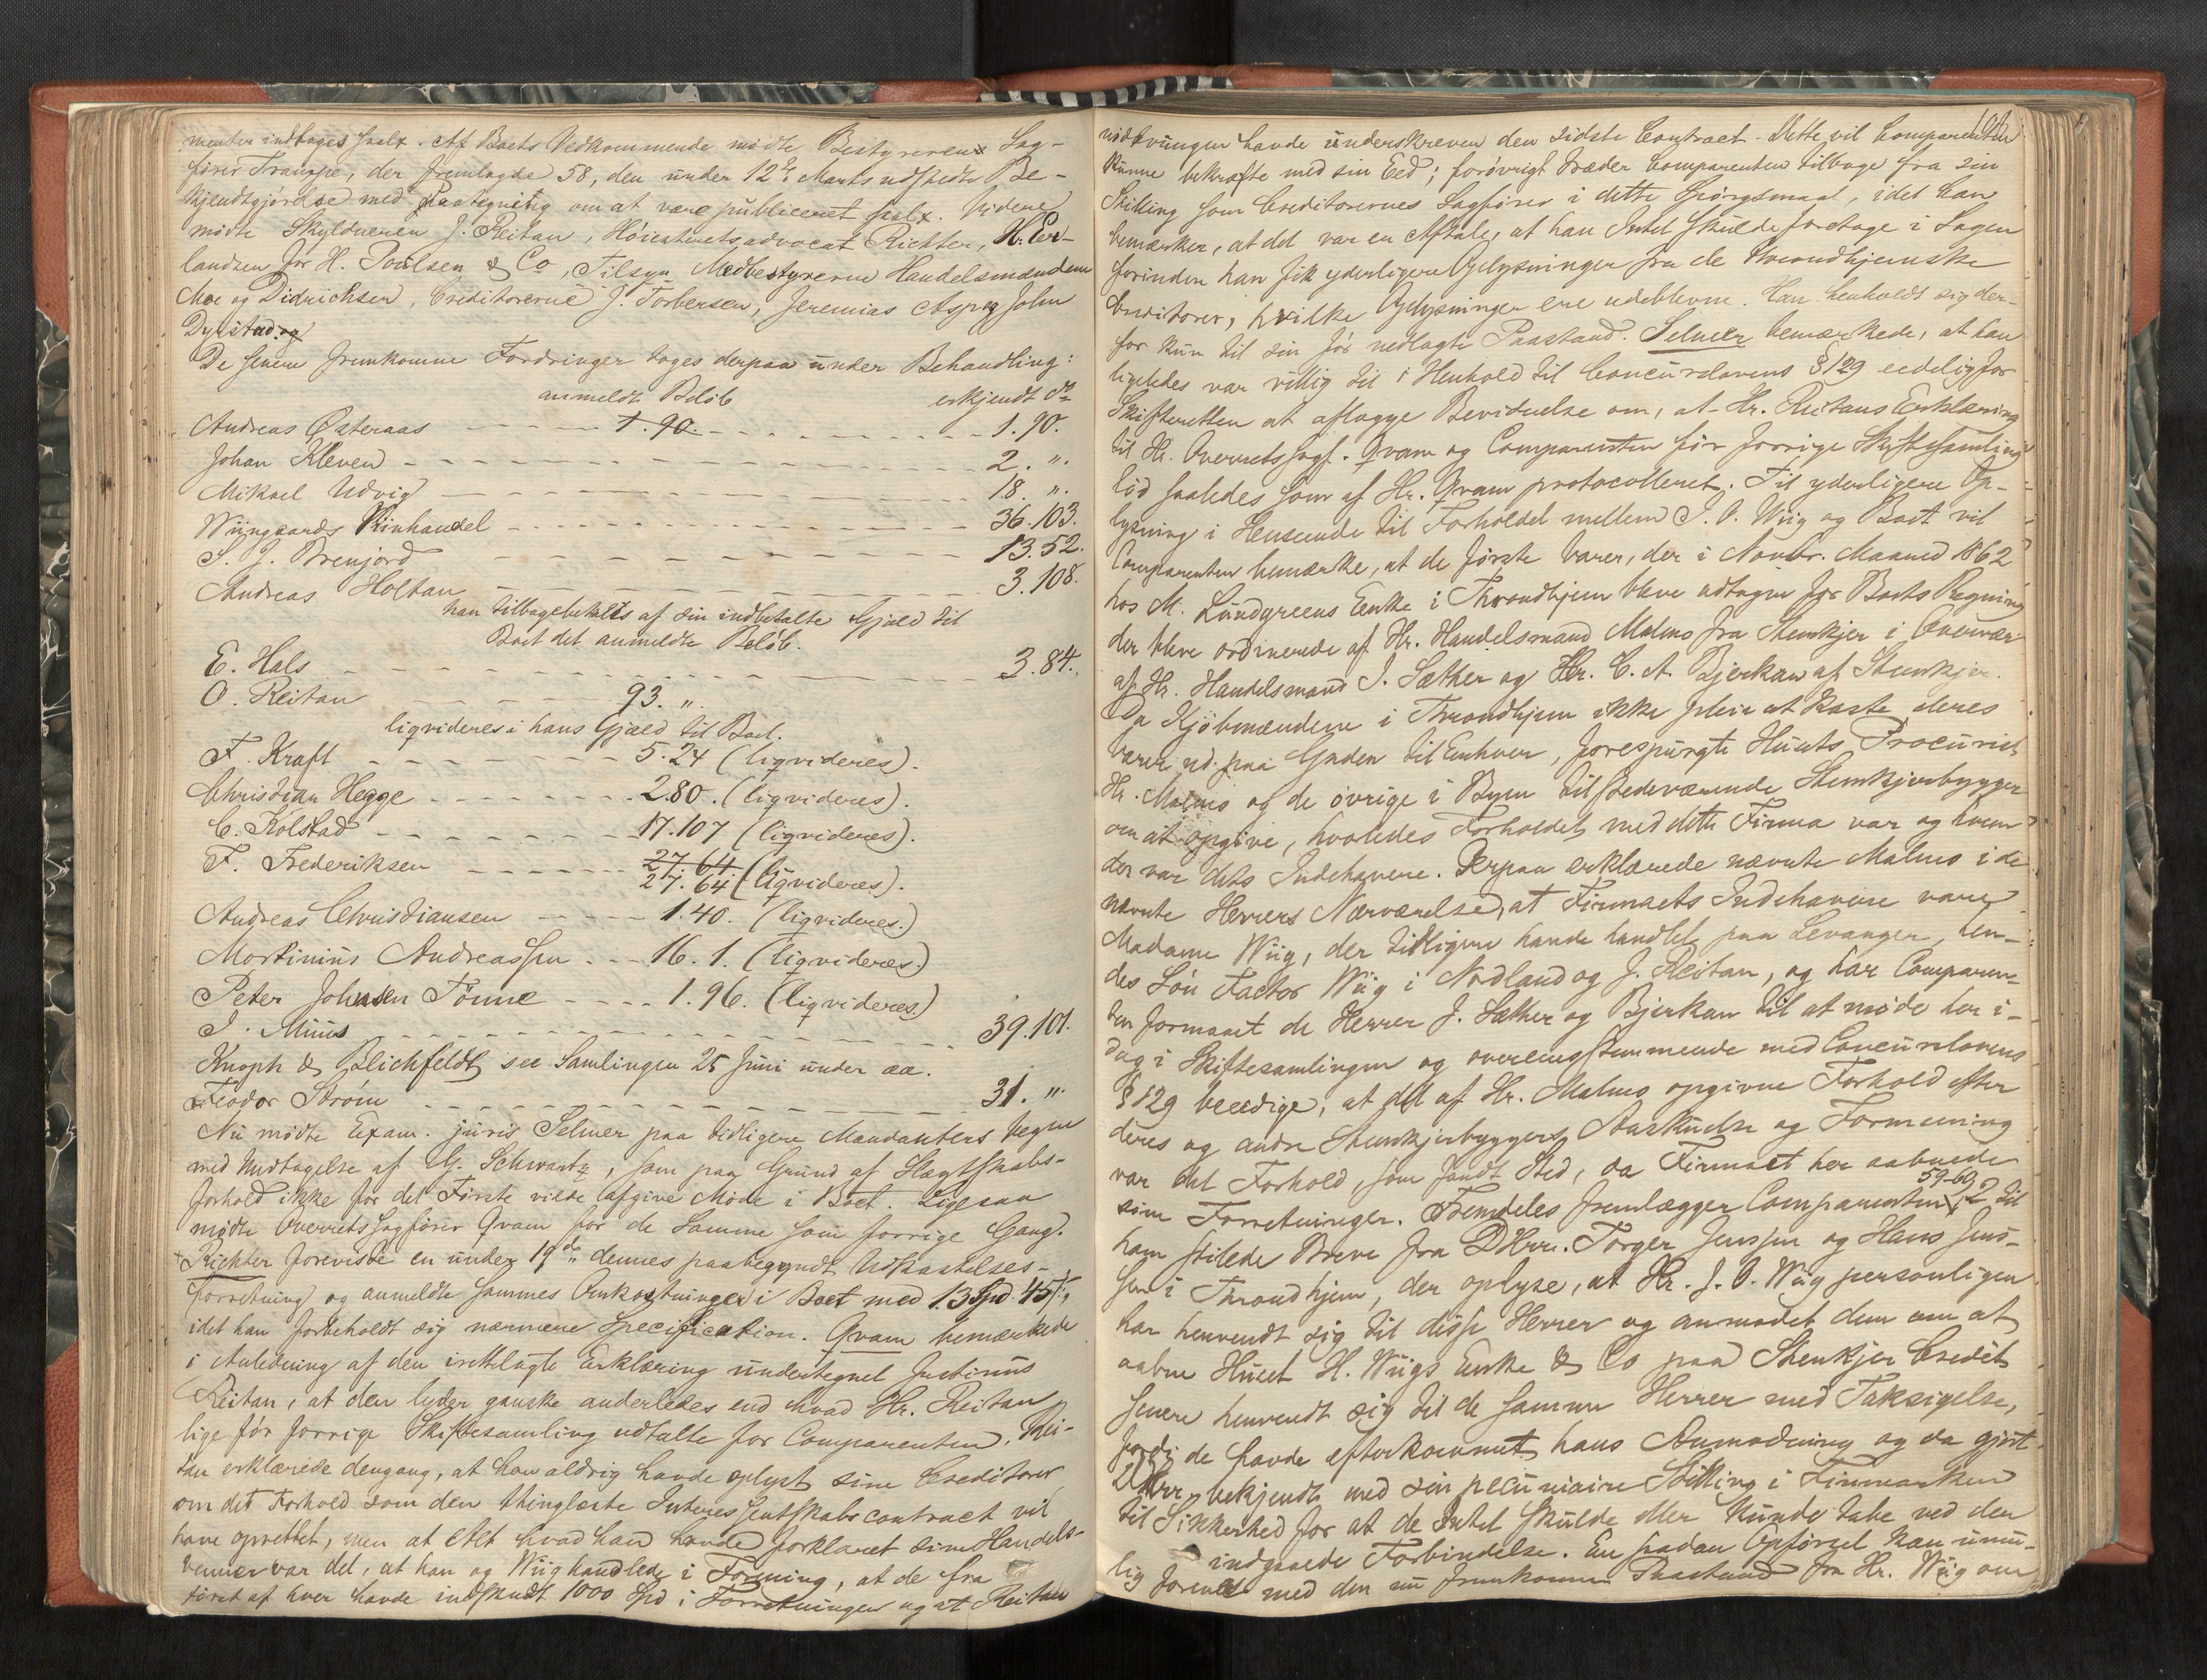 mender indtages salx. Af Boets Vedkommende mødte Bestyreren Sag-
fører Trampe, der fremlagde 58, den under 12te Marts udstedte Be-
kjendtgjørelse med Paategning om at være publiceret salx. Videre
mødte Skyldneren J. Reitan, Høiesteretsadvocat Richter, H. Er-
landsen for H. Poulsen & Co, Tilsyn Medbestyrerne Handelsmændene
Moe og Didrichsen, Creditorerne J. Torbersen, Jeremias Asp og John
Dylstad og
De senere fremkomne Fordringer toges derpaa under Behandling:
anmeldt Beløb erkjendt do
Andreas Østeraas 1. 90. 1. 90.
Johan Kleven 2. ".
Mikael Udvig 18. ".
Wiingaards Viinhandel 36. 103.
S. J. Brenjord 13. 52.
Andreas Holtan 3. 108.
han tilbagebetales af sin indbetalte Gjæld til
Boet det anmeldte Beløb.
E. Hals 3. 84.
O. Reitan 93. ".
liqvideres i hans Gjæld til Boet.
F. Kraft 5. 24 (liqvideres).
Christian Hegge 2. 80. (liqvideres).
C. Kolstad 17. 107 (liqvideres).
F. Frederiksen 27. 64
27. 64 (liqvideres).
Andreas Christiansen 1. 40. (liqvideres.)
Mortinius Andreassen 16. 1. (liqvideres.)
Peter Johnsen Tønne 1. 96. (liqvideres.)
J. Müus 39. 101.
Knoph & Blichfeldt see Samlingen 25 Juni under aa.
Feodor Strøm 31. ".
Nu mødte Exam. juris Selmer paa tidligere Mandanters Vegne
med Undtagelse af G. Schwartz, som paa Grund af Slægtskabs-
forhold ikke for det Første vilde afgive Møde i Boet. Ligesaa
mødte Overretssagfører Qvam for de Samme som forrige Gang.
Richter foreviste en under 19de dennes paabegyndt Udkastelses-
forretning og anmeldte sammes Omkostninger i Boet med 13 Spd. 45 ß,
idet han forbeholdt sig nærmere Specification. Qvam bemærkede
i Anledning af den irettelagte Erklæring undertegnet Justinus
Reitan, at den lyder ganske anderledes end hvad Hr. Reitan
lige før forrige Skiftesamling udtalte for Comparenten. Rei-
tan erklærede dengang, at han aldrig havde oplyst sine Creditorer
om det Forhold som den thinglæste Interessentskabscontract vil
have oprettet, men at Alt hvad han havde forklaret sine Handels-
venner var det, at han og Wiig handlede i Forening, at de fra
først af hver havde indskudt 1000 Spd i Forretningen og at Reitan
nødtvungen havde underskreven den sidste Contract. Dette vil Comparenten
kunne bekræfte med sin Eed; forøvrigt træder Comparenten tilbage fra sin
Stilling som Creditorernes Sagfører i dette Spørgsmaal, idet han
bemærker, at det var en Aftale, at han Intet skulde foretage i Sagen
forinden han fik yderligere Oplysninger fra de throndhjemske
Creditorer, hvilke Oplysninger ere udeblevne. Han henholdt sig der-
for kun til sin før nedlagte Paastand. Selmer bemærkede, at han
ligeledes var villig til i Henhold til Concurslovens § 129 eedelig for
Skifteretten at aflægge Bevidnelse om, at Hr. Reitans Erklæring
til Hr. Overretssagf. Qvam og Comparenten før forrige Skiftesamling
lød saaledes som af Hr. Qvam protocolleret. Til yderligere Op-
lysning i Henseende til Forholdet mellem J. O. Wiig og Boet vil
Comparenten bemærke, at de første Varer, der i Novbr. Maaned 1862
hos M. Lundgreens Enke i Throndhjem bleve udtagne for Boets Regning
der bleve ordinerede af Hr. Handelsmand Malmo fra Stenkjer i Overvær
af Hr. Handelsmand J. Sæther og Hr. C. A. Bjerkan af Stenkjer.
Da Kjøbmændene i Throndhjem ikke pleie at kaste deres
Varer ud paa Gaden til Enhver, forespurgte Husets Procurist
Hr. Malmo og de øvrige i Byen tilstedeværende Stenkjerbygger
om at opgive, hvorledes Forholdet med dette Firma var og hvem
der var dets Indehavere. Derpaa erklærede nævnte Malmo i de
nævnte Herrers Nærværelse, at Firmaets Indehavere vare
Madame Wiig, der tidligere havde handlet paa Levanger, hen-
des Søn Factor Wiig i Nordland og J. Reitan, og har Comparen-
ten formaaet de Herrer J. Sæther og Bjerkan til at møde her i-
dag i Skiftesamlingen og overeensstemmende med Concurslovens
§ 129 beedige, at det af Hr. Malmo opgivne Forhold efter
deres og andre Stenkjerbyggers Anskuelse og Formening
var det Forhold, som fandt Sted, da Firmaet her aabnede
59-60
sine Forretninger. Fremdeles fremlægger Comparenten 2 til
ham stilede Breve fra DHrr. Torger Jenssen og Hans Jens-
sen i Throndhjem, der oplyse, at Hr. J. O. Wiig personligen
har henvendt sig til disse Herrer og anmodet dem om at
aabne Huset H. Wiigs Enke & Co paa Stenkjer Credit
senere henvendt sig til de samme Herrer med Taksigelse,
fordi de havde efterkommet hans Anmodning og da gjort
DHrr. bekjendt med sin pecuniaire Stilling i Finmarken
til Sikkerhed for at de Intet skulde eller kunde tabe ved den
indgaaede Forbindelse. En saadan Opførsel kan umu-
lig forenes med den nu fremkomne Paastand fra Hr. Wiig om